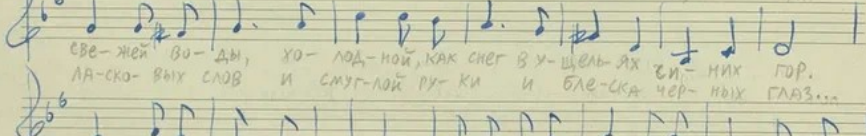 све-жей во-ды, хо-лод-ной, как снег в у-щель-ях си-них гор.
ла-ско-вых слов и смуг-лой ру-ки и бле-ска чёр-ных глаз...